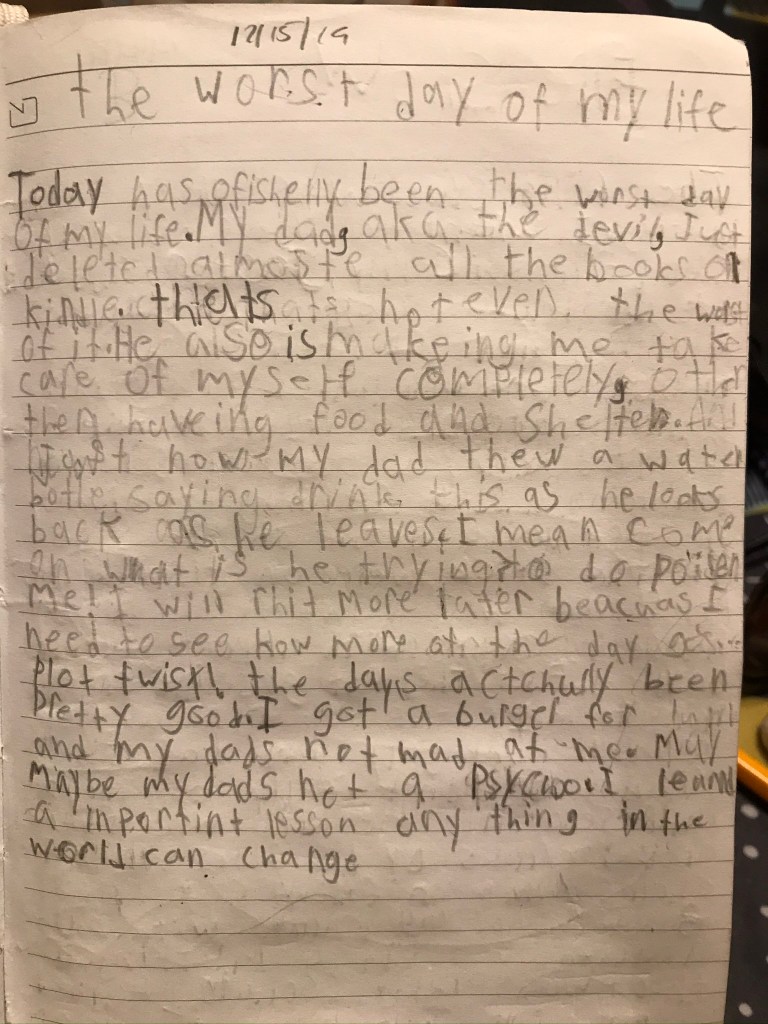 12/15/19
the worst day of my life
Today has ofishelly been the worst day
of my life. My dad, aka the devil, Just
deleted almoste all the books on
kindle. thats not even the worst
of it. He also is makeing me take
care of myself completely, other
then haveing food and shelter.
how my dad thew a water
botle saying drink this as he looks
back as he leaves, I mean come
on what is he trying to do poisen
me! I will more later beacuas I
need to see how more of the day
Plot twist! the days actchully been
pretty good. I got a burger for
and my dads not mad at me. May
Maybe my dads not a psycwo. I learnd
a inportint lesson any thing in the
world can change